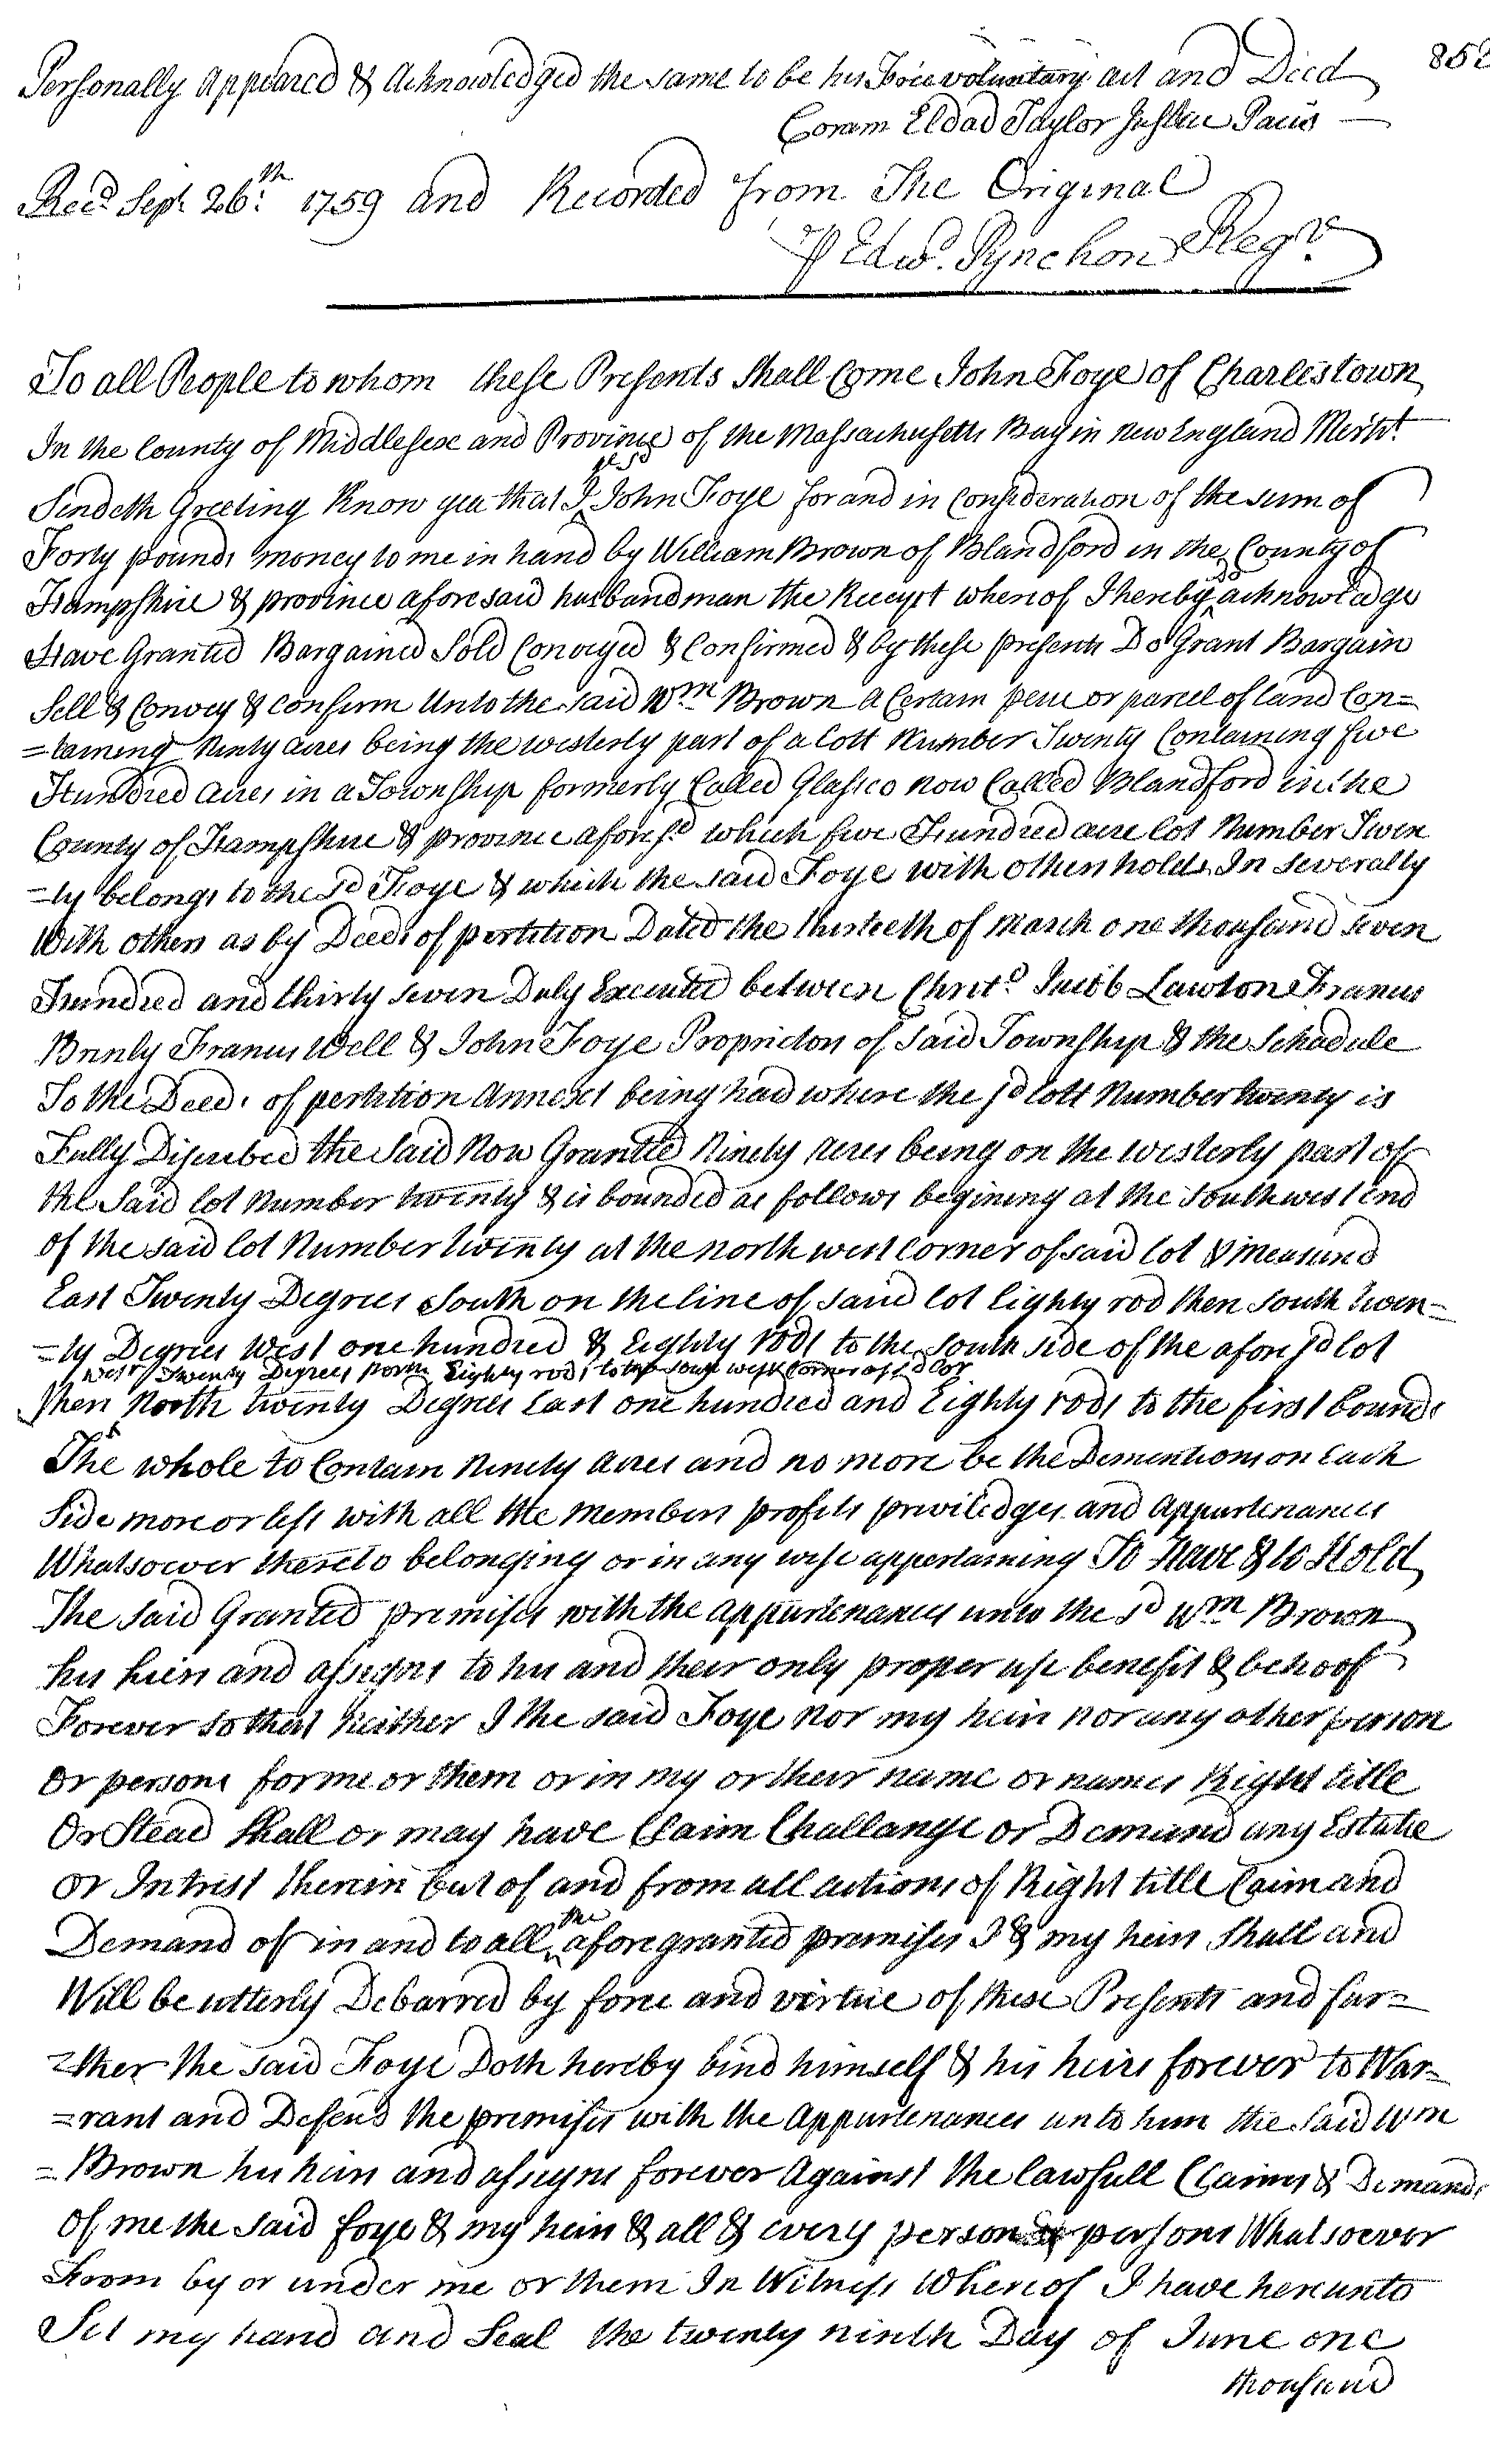 852
Personally Appeared & Acknowledged the same to be his Free voluntary act and Deed
Coram Eldad Taylor Justice Pacis
Recd Sept 26th: 1759 and Recorded from The Original
P Edwd. Pynchon Regr
To all People to whom these Presents Shall Come John Foye of Charlestown
In the County of Middlesex and Province of the Massachusetts Bay in New England Mercht.
Sendeth Greeting Know yea that I ye sd John Foye for and in Consideration of the sum of
Forty pounds money to me in hand by William Brown of Blandford in the County of
Hampshire & province aforesaid husbandman the Receipt whereof I hereby do acknowledge
Have Granted Bargained Sold Conveyed & Confirmed & by these presents Do Grant Bargain
Sell & Convey & confirm Unto the said Wm Brown a Certain peice or parcel of land Con=
=taining Ninty acres being the westerly part of a Lott Number Twenty Containing five
Hundred acres in a Township formerly Called Glasco now Called Blandford in the
County of Hampshire & province aforesd which five Hundred acre lot Number Twen
=ty belongs to the sd Foye & which the said Foye with others holds In severally
With others as by Deeds of partition Dated the thirtieth of March one thousand seven
Hundred and thirty seven Duly Executed between Christ Jacob Lawton Francis
Brinly Francis Well & John Foye Proprietors of said Township & the Schadule
To the Deeds of partition Annext being had where the sd lott Number twenty is
Fully Discribed the Said Now Granted Ninety acres being on the westerly part of
the Said lot Number twenty & is bounded as follows begining at the Southwest End
of the said lot Number twenty at the north west Corner of said lot & Measured
East Twenty Degrees South on the line of said lot Eighty rod then South twen=
=ty Degrees West one hundred & Eighty rods to the South side of the afore sd lot
West Twenty Degrees North Eighty rods to the south west Corner of sd Lot
then North twenty Degrees East one hundred and Eighty rods to the first bounds
The whole to Contain Ninety acres and no more be the Dementions on Each
Side more or less with all the members profits priviledges and appurtenances
Whatsoever thereto belonging or in any wise appertaining To Have & to Hold
The Said Granted premises with the appurtenances unto the sd Wm Brown
his heirs and assigns to his and their only proper use benefit & behoof
Forever so that neither I the said Foye nor my heirs nor any other person
Or persons for me or them or in my or their name or names Right title
Or Stead Shall or may have Claim Challange or Demand any Estate
or Intrest therein but of and from all actions of Right title Caim and
Demand of in and to all the afore granted premises I & my heirs Shall and
Will be utterly Debarred by force and virtue of these Presents and fur=
=ther the said Foye Doth hereby bind himself & his heirs forever to War=
=rant and Defend the premises with the Appurtenances unto him the Said Wm
=Brown his heirs and assigns forever Against the lawfull Claims & Demands
Of me the Said foye & my heirs & all & every person persons Whatsoever
From by or under me or them In Witness Whereof I have hereunto
Set my hand and Seal the twenty ninth Day of June one
thousand